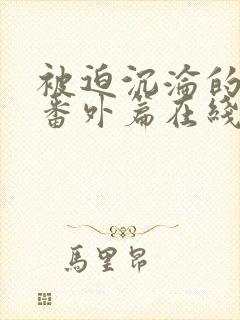 被迫沉淪的
番外篇在綫
馬里昂